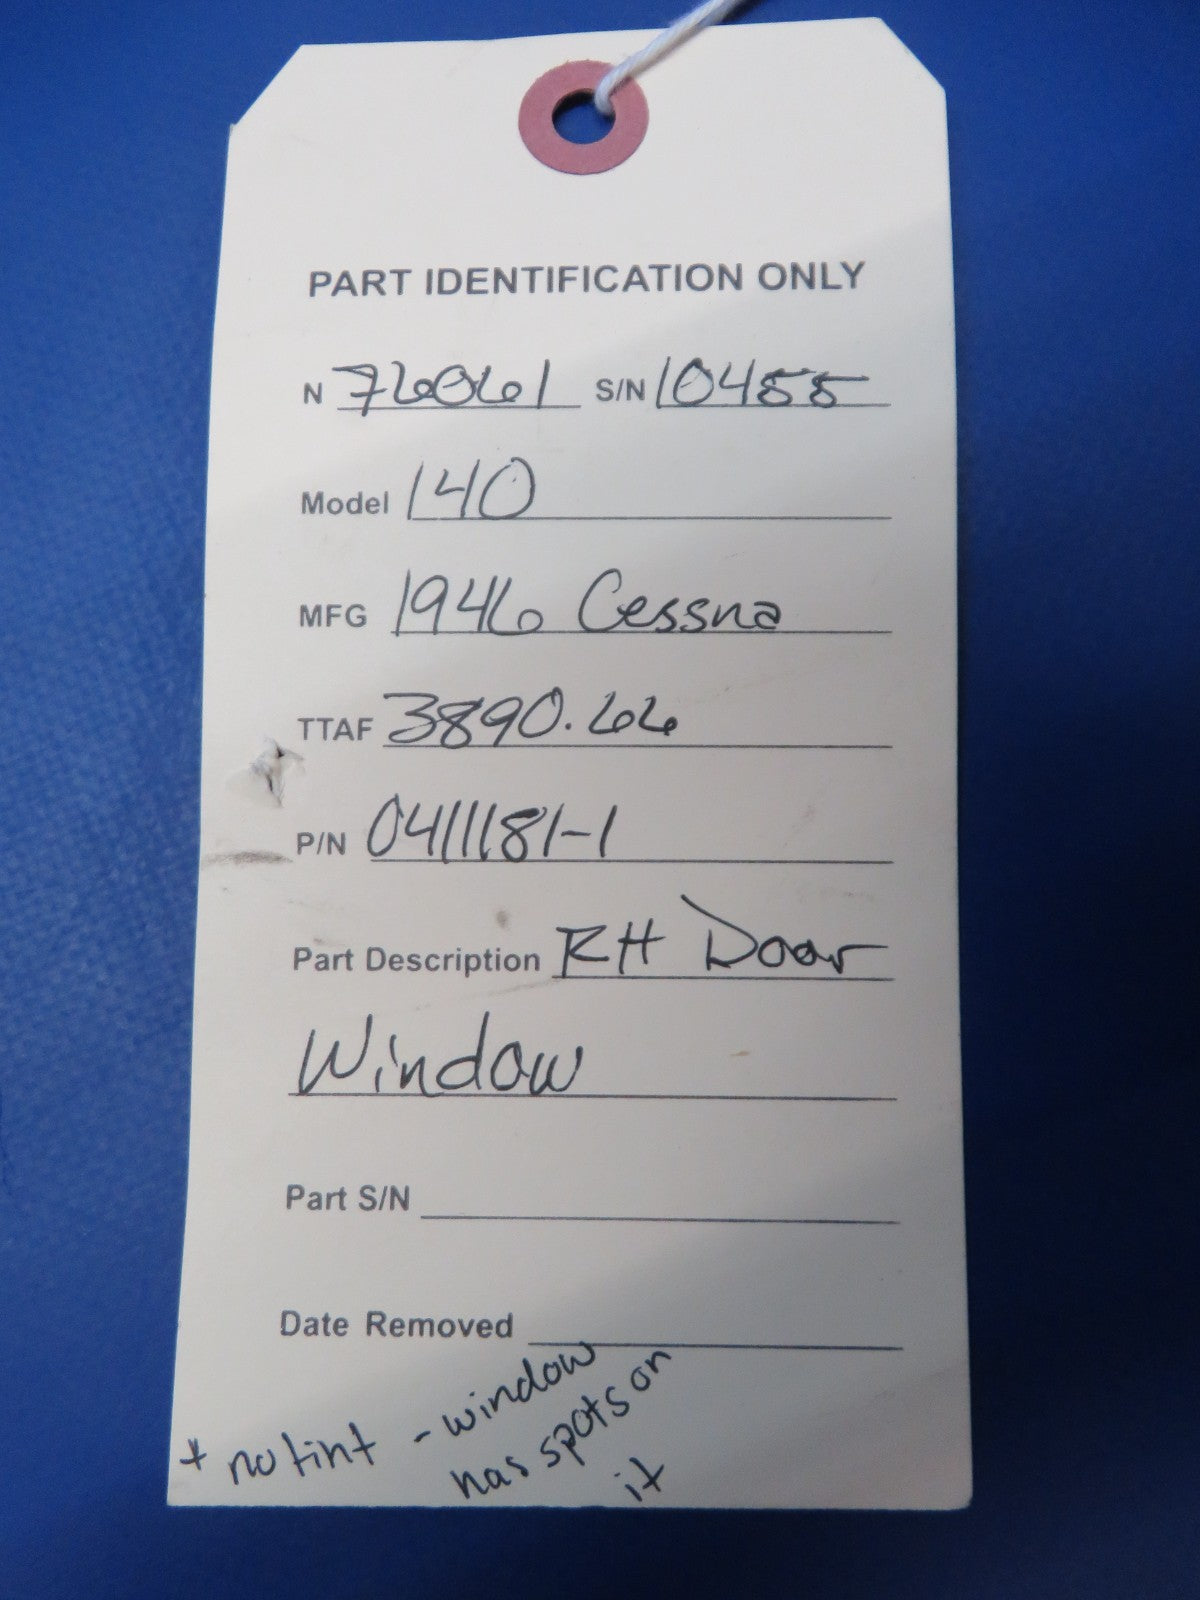 PART IDENTIFICATION ONLY
N 76061 S/N 10455
Model 140
MFG 1946 Cessna
TTAF 3890.66
P/N 0411181-1
Part Description RH Door
Window
Part S/N
Date Removed
* no tint - window
has spots on
it